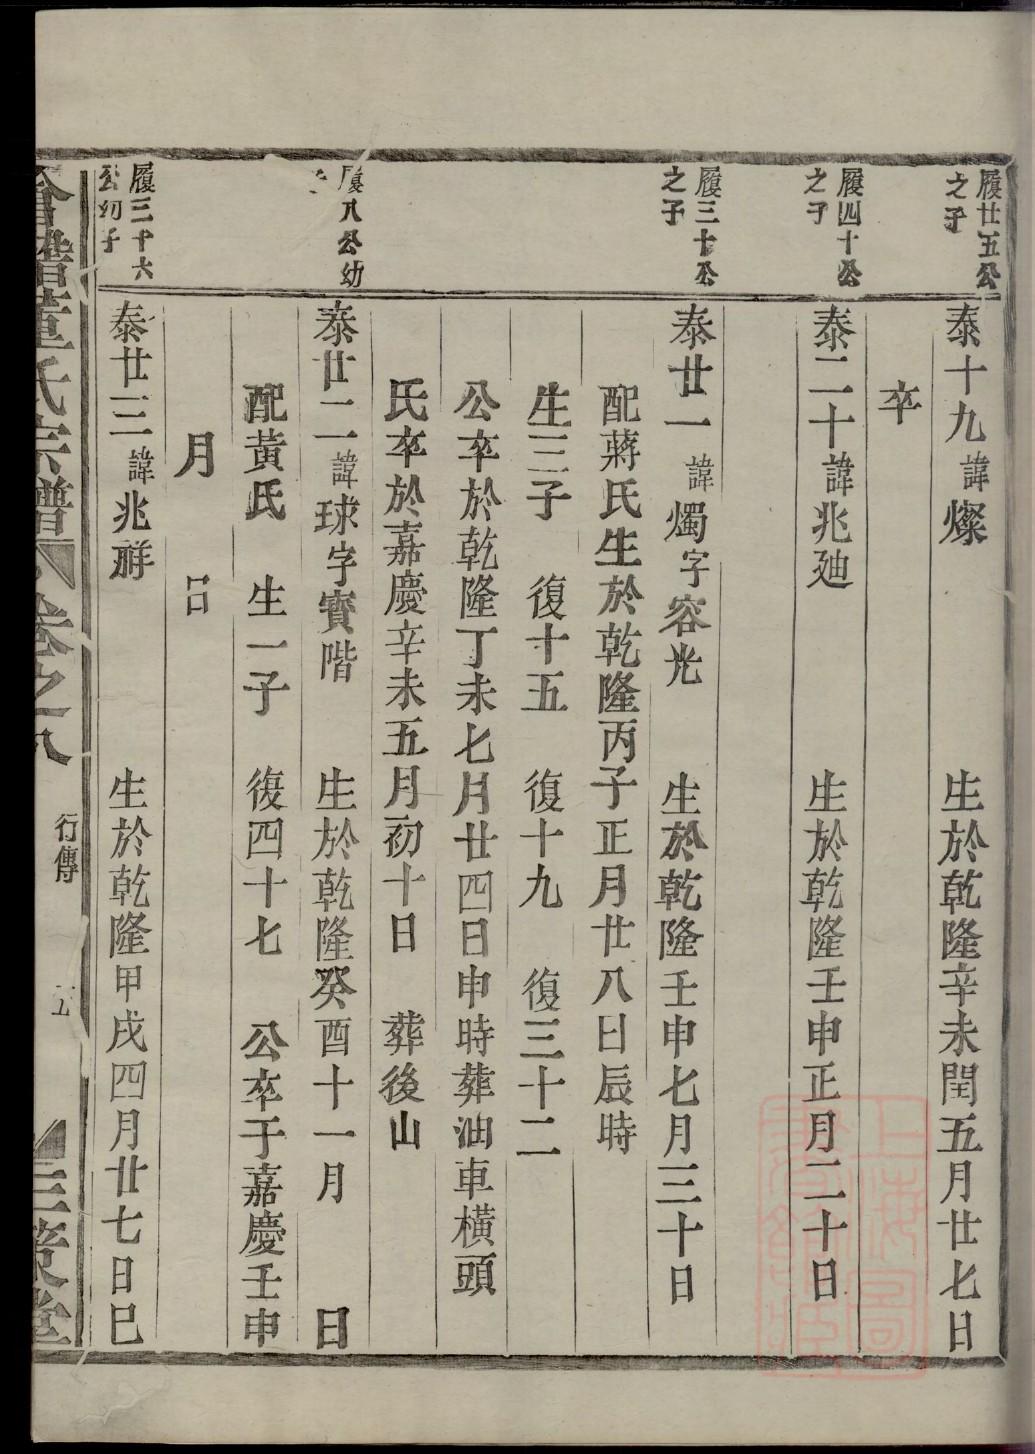 履廿五公
之子
泰十九諱燦 生於乾隆辛未閏五月廿七日
卒
履四十公
之子
泰二十諱兆廸 生於乾隆壬申正月二十日
履三十公
之子
泰廿一諱燭字容光 生於乾隆壬申七月三十日
配蔣氏生於乾隆丙子正月廿八日辰時
生三子 復十五 復十九 復三十二
公卒於乾隆丁未七月廿四日申時葬油車橫頭
氏卒於嘉慶辛未五月初十日 葬後山
履八公幼
子
泰廿二諱球字寶階 生於乾隆癸酉十一月 日
配黃氏 生一子 復四十七 公卒于嘉慶壬申
月 日
履三十六
公幼子
泰廿三諱兆祥 生於乾隆甲戌四月廿七日巳
會稽董氏宗譜 卷之八 行傳 五 三策堂
上海圖